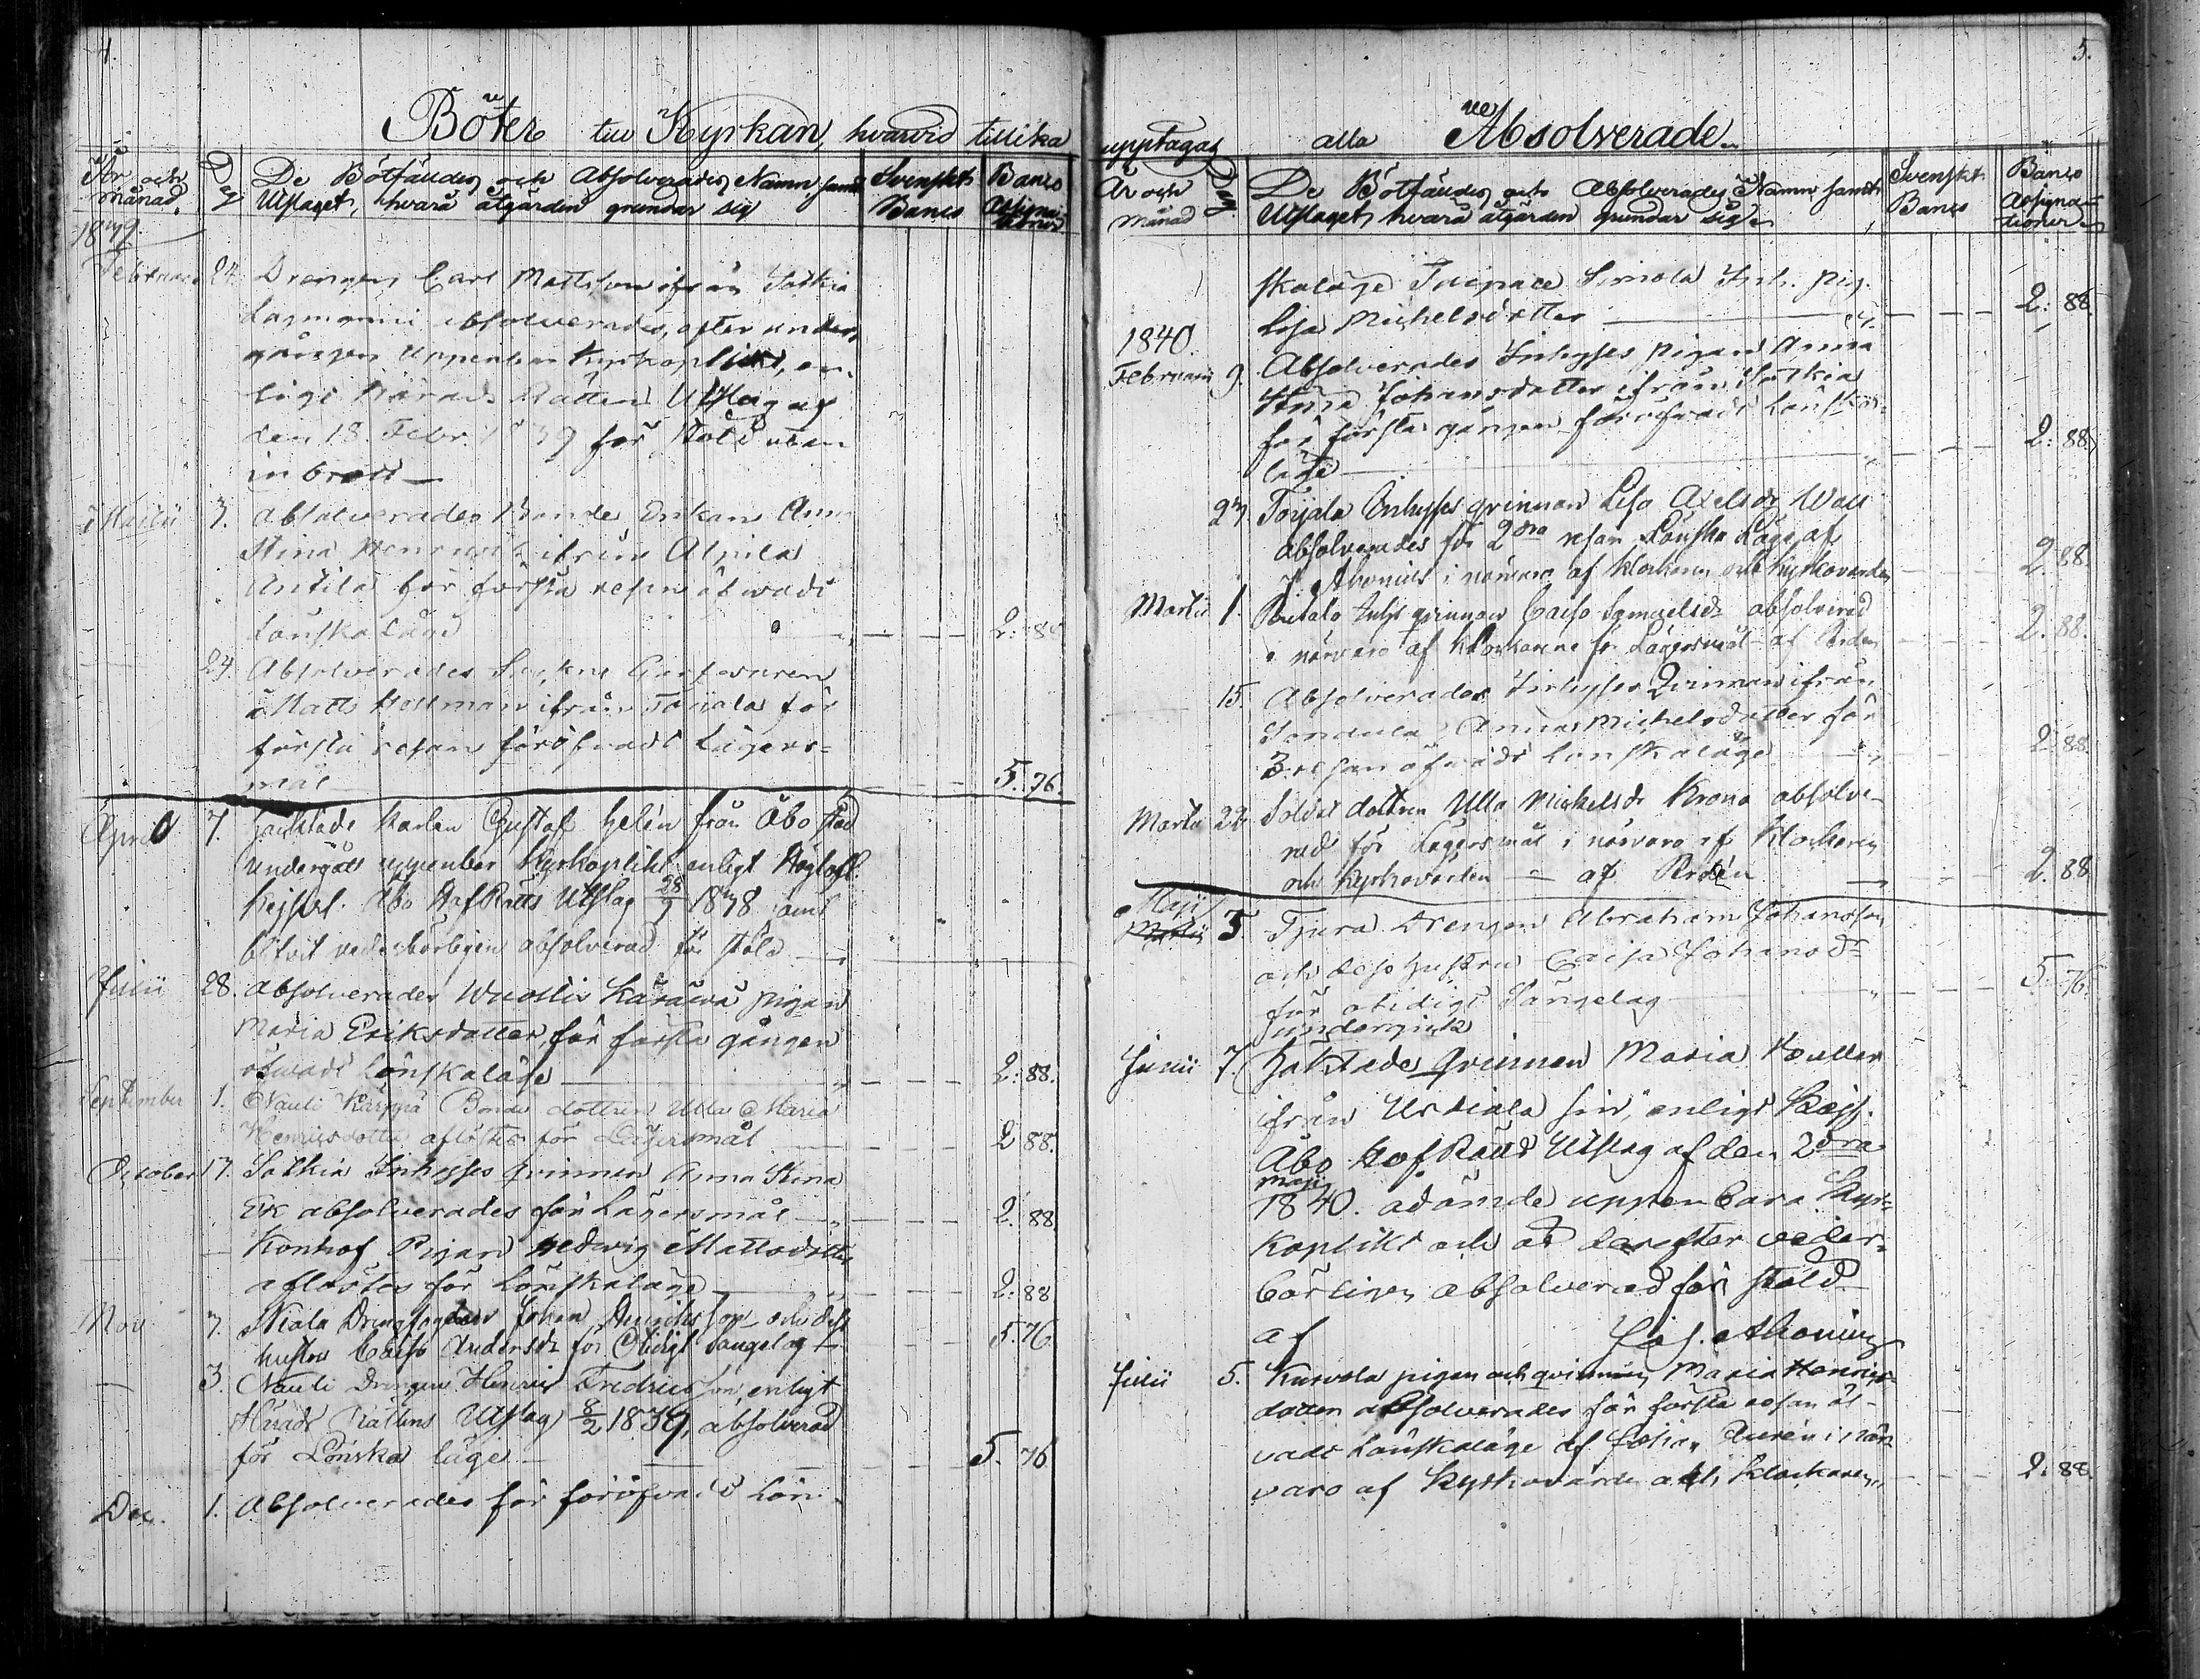 4.
Böter till Kyrkan, hvarvid tillika
År och månad. Dag De Bötfäldes och Absolverades Namn samt Utslaget, hvarå åtgärden grundar sig Svenskt Banco Banco Assignationer
1839.
Februarii 24. Drengen Carl Mattsson ifrån Satkia
Lagmanni absolverades, efter under
gången uppenbar Kyrkoplikt, en-
ligt Härads Rättens Utslag af
den 18. Febr. 1839 för stöld utan
inbrott
Martii 3. Absolverades Bonde Enkan Anna
Stina Henricsdr ifrån Alpila
Antila för första resan öfwadt
Lönskaläge 2: 88
24. Absolverades Sockne
Matts Hellman ifrån Tarjala för
första resan föröfwadt Lägers-
mål 5.76.
April 7. Häktade Karlen Gustaf Helén från Åbo stad
undergått uppenbar Kyrkoplikt enligt Höglofl.
Kejserl. Åbo HofRätts Utslag 1838 samt
blifvit vederbörligen absolverad för stöld
Julii 28. Absolverades Wuoltis Käräwä pigan
Maria Eriksdotter, för första gången
öfwadt Lönskaläge 2: 88.
September 1. Nauti Karppa Bonde dottren Ulla Maria
Henricsdotter aflöstes för Lägersmål 2 88.
October 17. Satkia Inhyses qvinnan Anna Stina
Ek absolverades för Lägersmål 2. 88.
Konhof Pigan Hedwig Mattsdotter
aflöstes för Lönskaläge 2: 88
Nov 3. Johan Henricsson och dess
hustru Caisa Andersdr för Otidigt Sängelag 5.76
3. Nauti Drengen Henric Fredricsson enligt
Härads Rättens Utslag 8/2 1839, absolverad
för Lönska läge 5. 76
Dec. 1. Absolverades för föröfvadt Lön-
5.
upptagas alla Absolverade
År och månad Dag De Bötfäldes och Absolverades Namn samt Utslaget, hvarå åtgärden grundar sig Svenskt Banco Banco Assignationer
skaläge Simola Inh. Pig.
Lisa Michelsdotter 2: 88.
1840.
Februarii 9. Absolverades Inhyses pigan Anna
Stina Johansdotter ifrån Satkia
för första gången föröfvadt Lönska
läge 2: 88
23. Tarjala Inhyses qvinnan Lisa Axelsdr Wall
absolverades för 2dra resan Lönska Läge af
J. Ahonius i närvaro af Klockaren och Kyrkovärden 2. 88.
Martii 1. Inhys qvinnan Caisa Samuelsdr absolverad
i närvaro af Klockarene för Lägersmål af Rodén 2. 88.
15. Absolverades Inhyses Qvinnan ifrån
Sondula Anna Michelsdotter för
3. resan öfwadt Lönskaläge 2. 88.
Martii 22. Soldat dottren Ulla Michelsdr Krona absolve-
rad för Lägersmål i närvaro af Klockaren
och Kyrkovärden af Rodén 2. 88
Maji 3. Tjura Drengen Abraham Johansson
och dess hustru Caisa Johansdr
för otidigt Sängelag 5. 76.
undergick
Junii 7. Häktade qvinnan Maria
ifrån Urdiala sin, enligt Kejs.
Åbo Hof Rätts Utslag af den 2dra
Maji
1840. adömde uppenbara Kyr-
koplikt och är derefter veder-
börligen absolverad för stöld
af Joh. Ahonius
Julii 5. Kurvola pigan och qvinnan Maria Henrics-
dotter absolverades för första resan öf-
vadt Lönskaläge af i när-
varo af Kyrkovärden och Klockaren 2. 88.